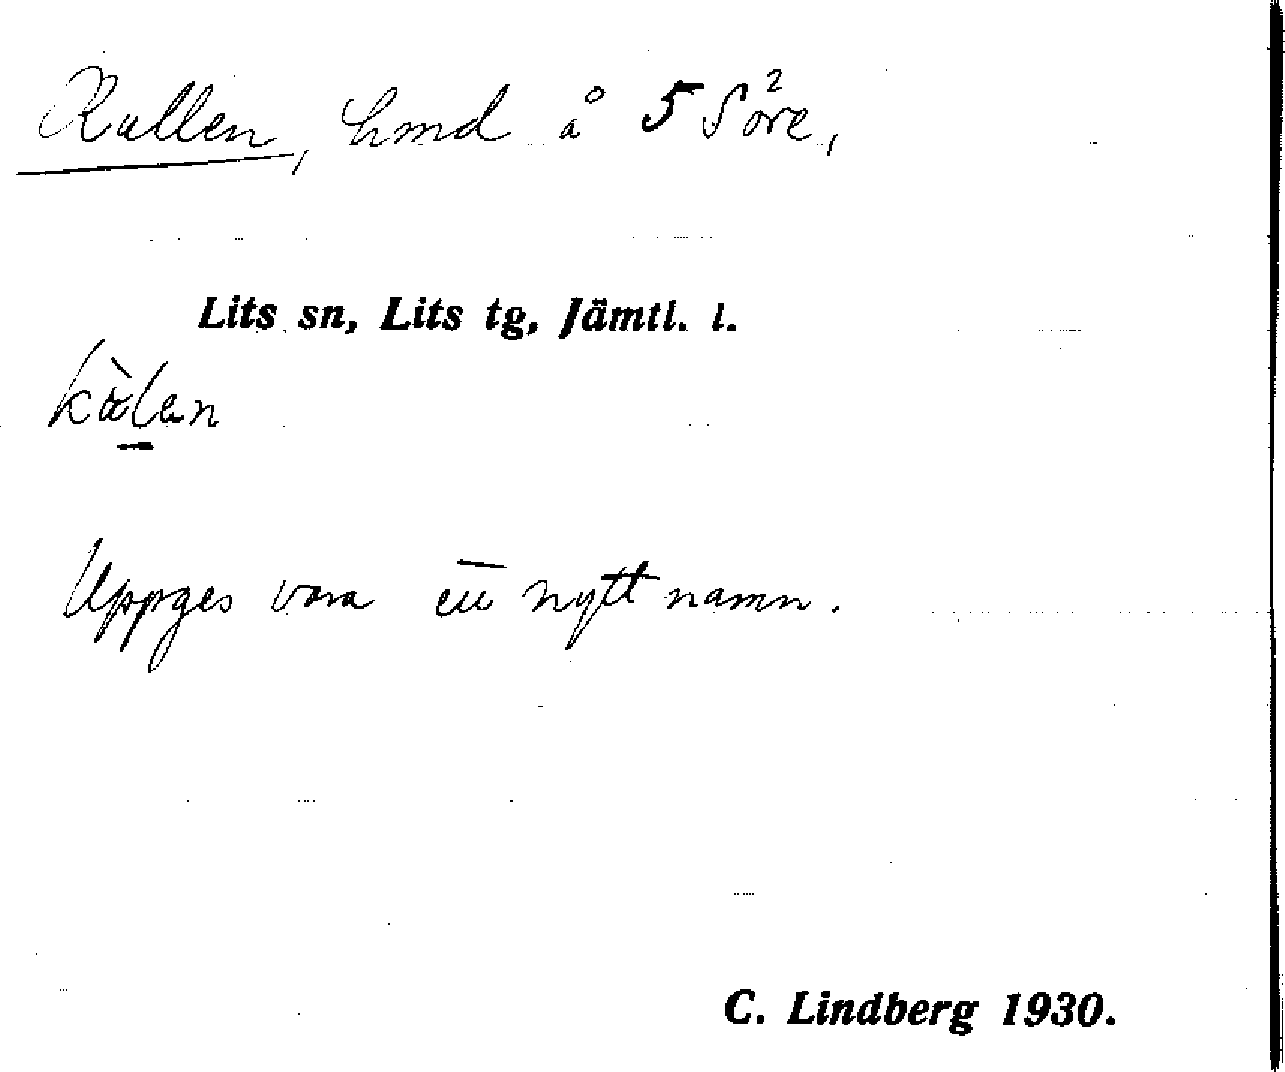 Kullen, hmd å 5 Söre²,
Lits sn, Lits tg, Jämtl. l.
Uppges vara ett nytt namn.
C. Lindberg 1930.